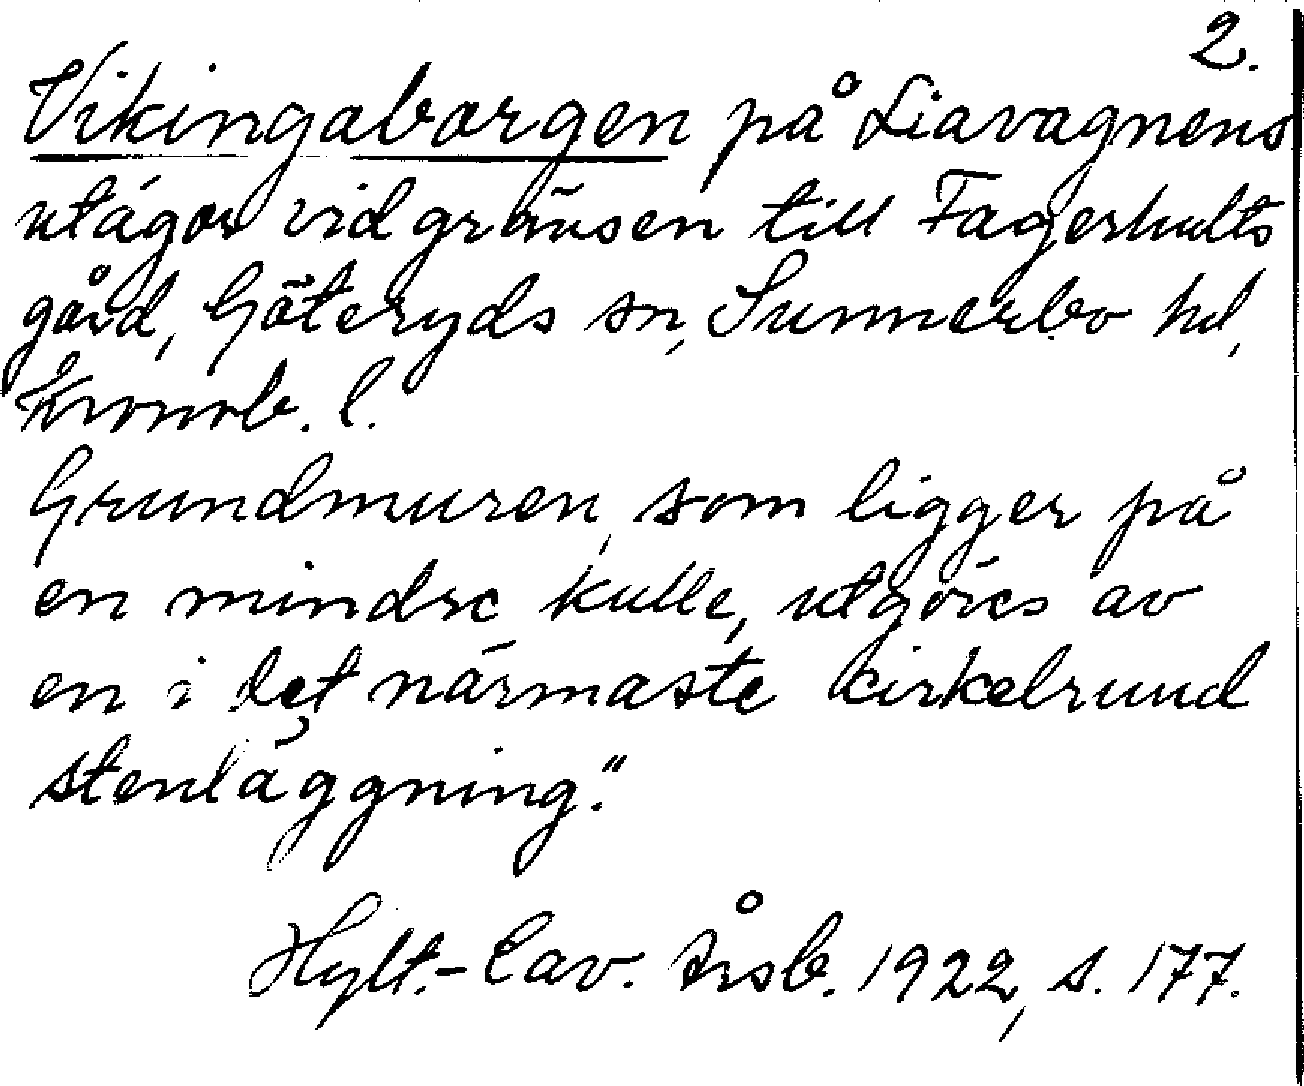 2.
Vikingaborgen på Liavagnens
utägor vid gränsen till Fagerhults
gård, Göteryds sn, Sunnerbo hd,
Kronob. l.
Grundmuren, som ligger på
en mindre kulle, utgöres av
en i det närmaste cirkelrund
stenläggning."
Hylt.-Cav. Årsb. 1922, s. 177.